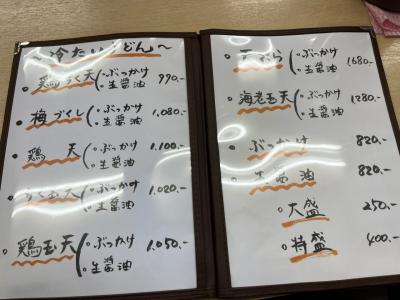 ～冷たいうどん～
鶏ちく天 ・ぶっかけ ・生醤油 990.-
梅づくし ・ぶっかけ ・生醤油 1,080.-
鶏天 ・ぶっかけ ・生醤油 1,100.-
天 ・ぶっかけ ・生醤油 1,020.-
鶏玉天 ・ぶっかけ ・生醤油 1,050.-
天ぷら ・ぶっかけ ・生醤油 1680.-
海老玉天 ・ぶっかけ ・生醤油 1280.-
ぶっかけ 820.-
生醤油 820.-
大盛 250.-
特盛 400.-